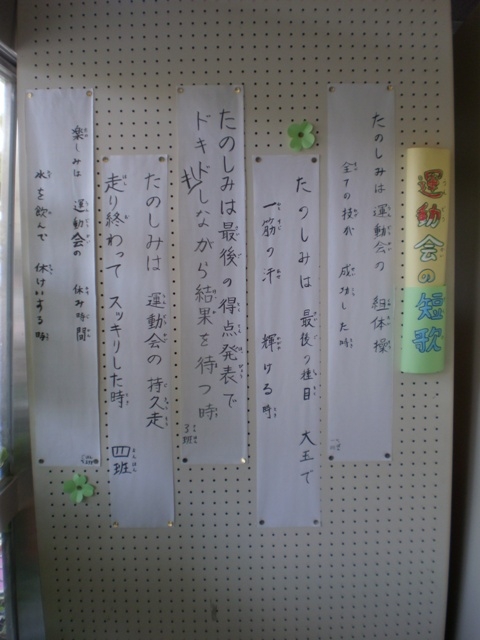 運動会の短歌
たのしみは 運動会の 組体操
全ての技が 成功した時
たのしみは 最後の種目 大玉で
一筋の汗 輝ける時
たのしみは最後の得点発表で
ドキドキしながら結果を待つ時
3班
たのしみは 運動会の 持久走
走り終わって スッキリした時 四班
楽しみは 運動会の 休み時間
水を飲んで 休けいする時